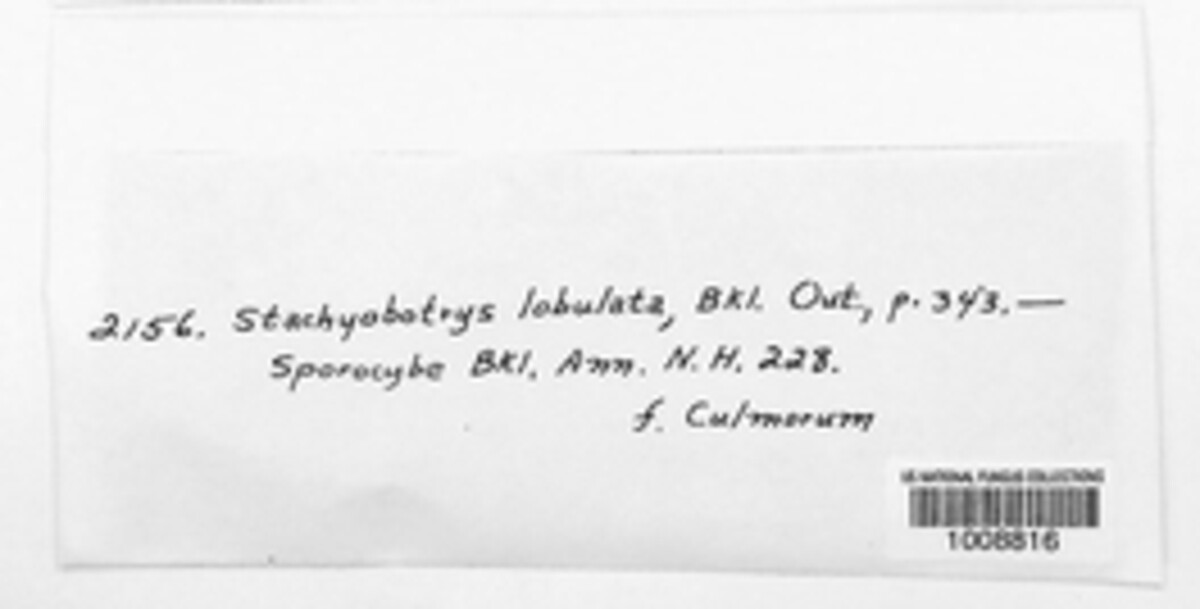 2156. Stachyobotrys lobulata, Bkl. Out, p. 343. —
Sporocybe Bkl. Ann. N. H. 228.
f. Culmorum
US NATIONAL FUNGUS COLLECTIONS
1008816